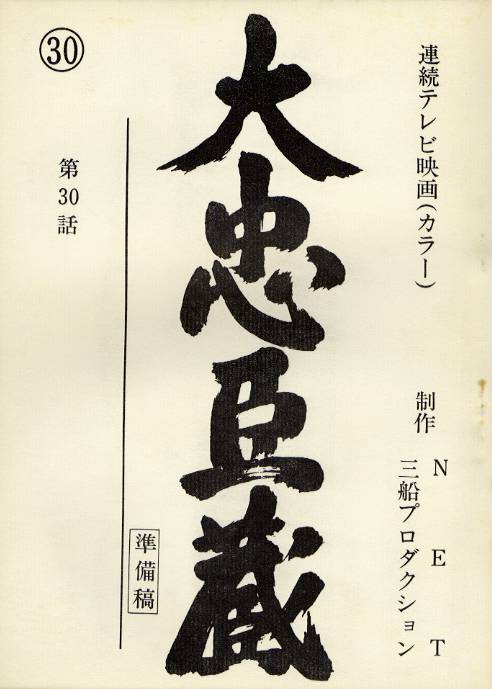 連続テレビ映画(カラー)
制作 NET
三船プロダクション
大忠臣蔵
準備稿
第30話
㉚